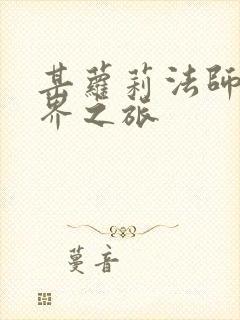 某蘿莉法師
界之旅
蔓音